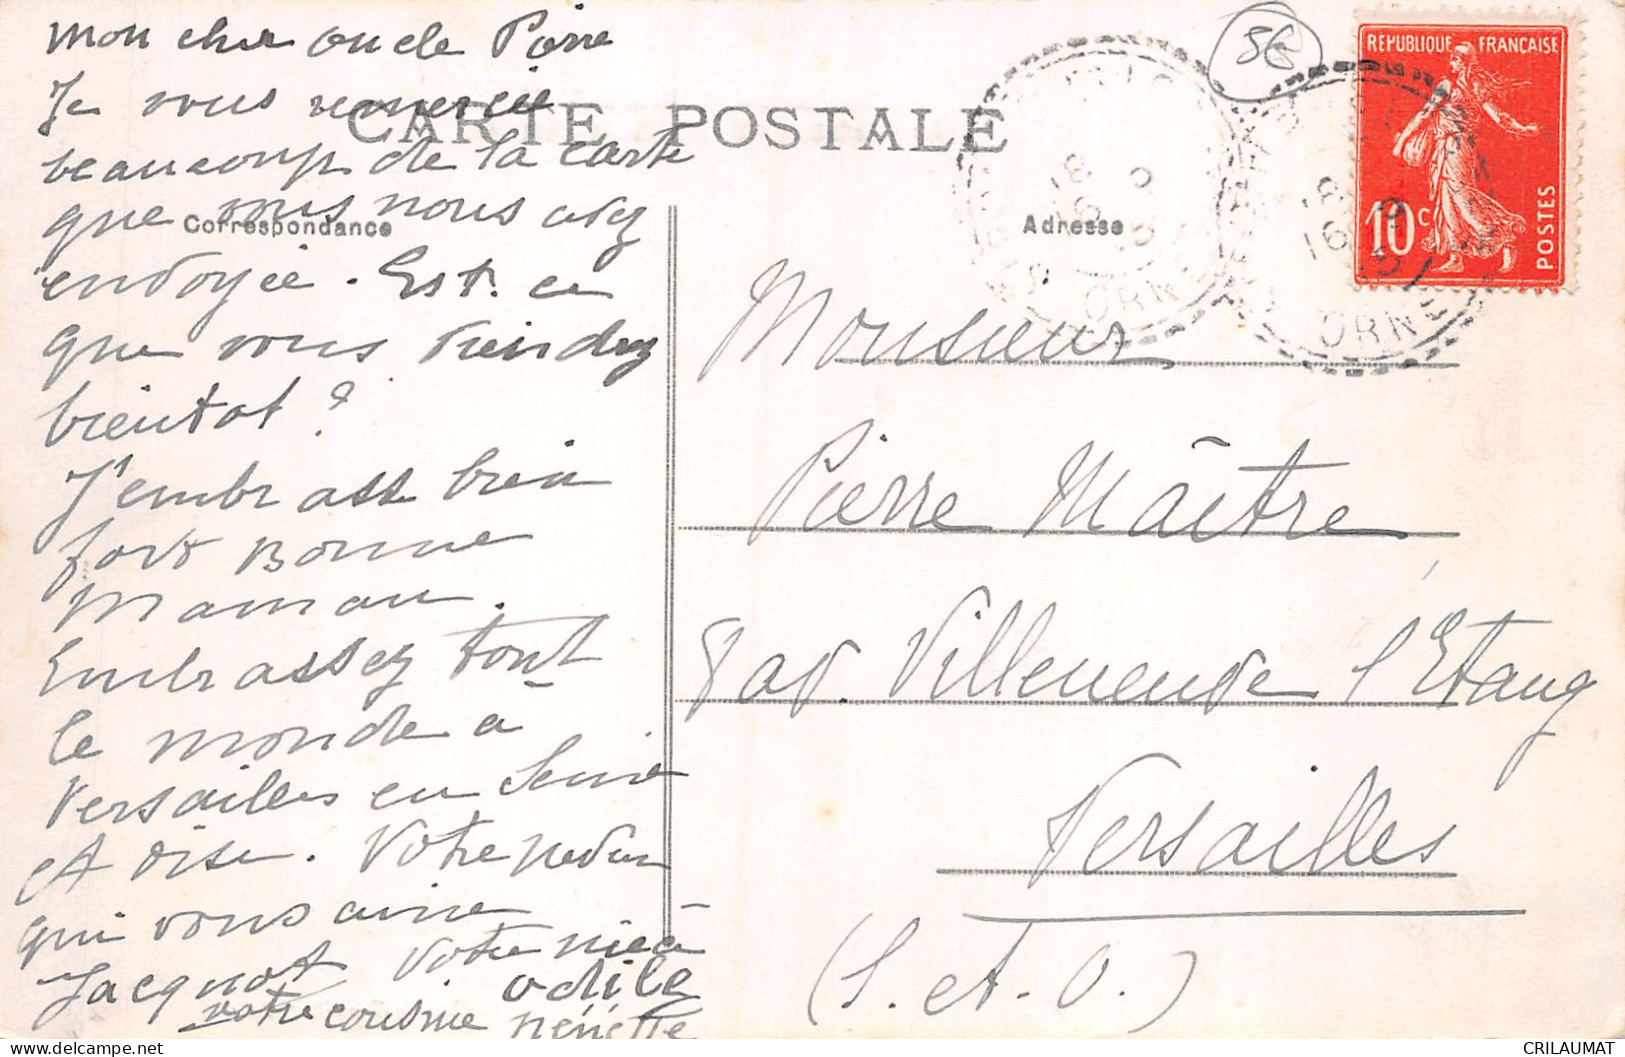 mon cher oncle Pierre
Je vous remercie
beaucoup de la carte
que vous nous avez
envoyée. Est. ce
que vous viendrez
bientot ?
J'embrasse bien
fort Bonne
Maman.
Embrassez tout
le monde à
Versailles en Seine
et Oise. Votre neveu
qui vous aime
Jacquot Votre nièce
odile
votre cousine nénette
CARTE POSTALE
Correspondance
Adresse
56
REPUBLIQUE FRANCAISE
10c
POSTES
ORNE
ORNE
Monsieur
Pierre Maître
8 av. Villeneuve l'Etang
Versailles
(S. et. O.)
CRILAUMAT